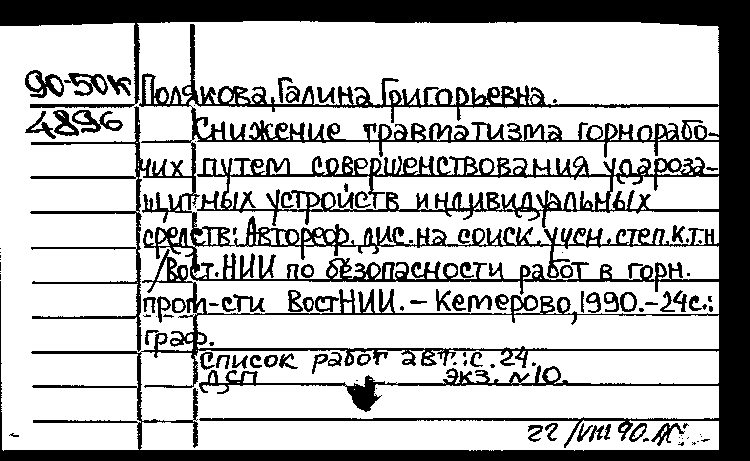 90-50к Полякова, Галина Григорьевна.
4896 Снижение травматизма горнорабо-
чих путем совершенствования удароза-
щитных устройств индивидуальных
средств: Автореф. дис. на соиск. учен. степ. к.т.н
/Вост.НИИ по безопасности работ в горн.
пром-сти ВостНИИ. – Кемерово, 1990. – 24с.:
граф.
Список работ авт.: с. 24.
ДСП экз. №10.
22/VIII 90.